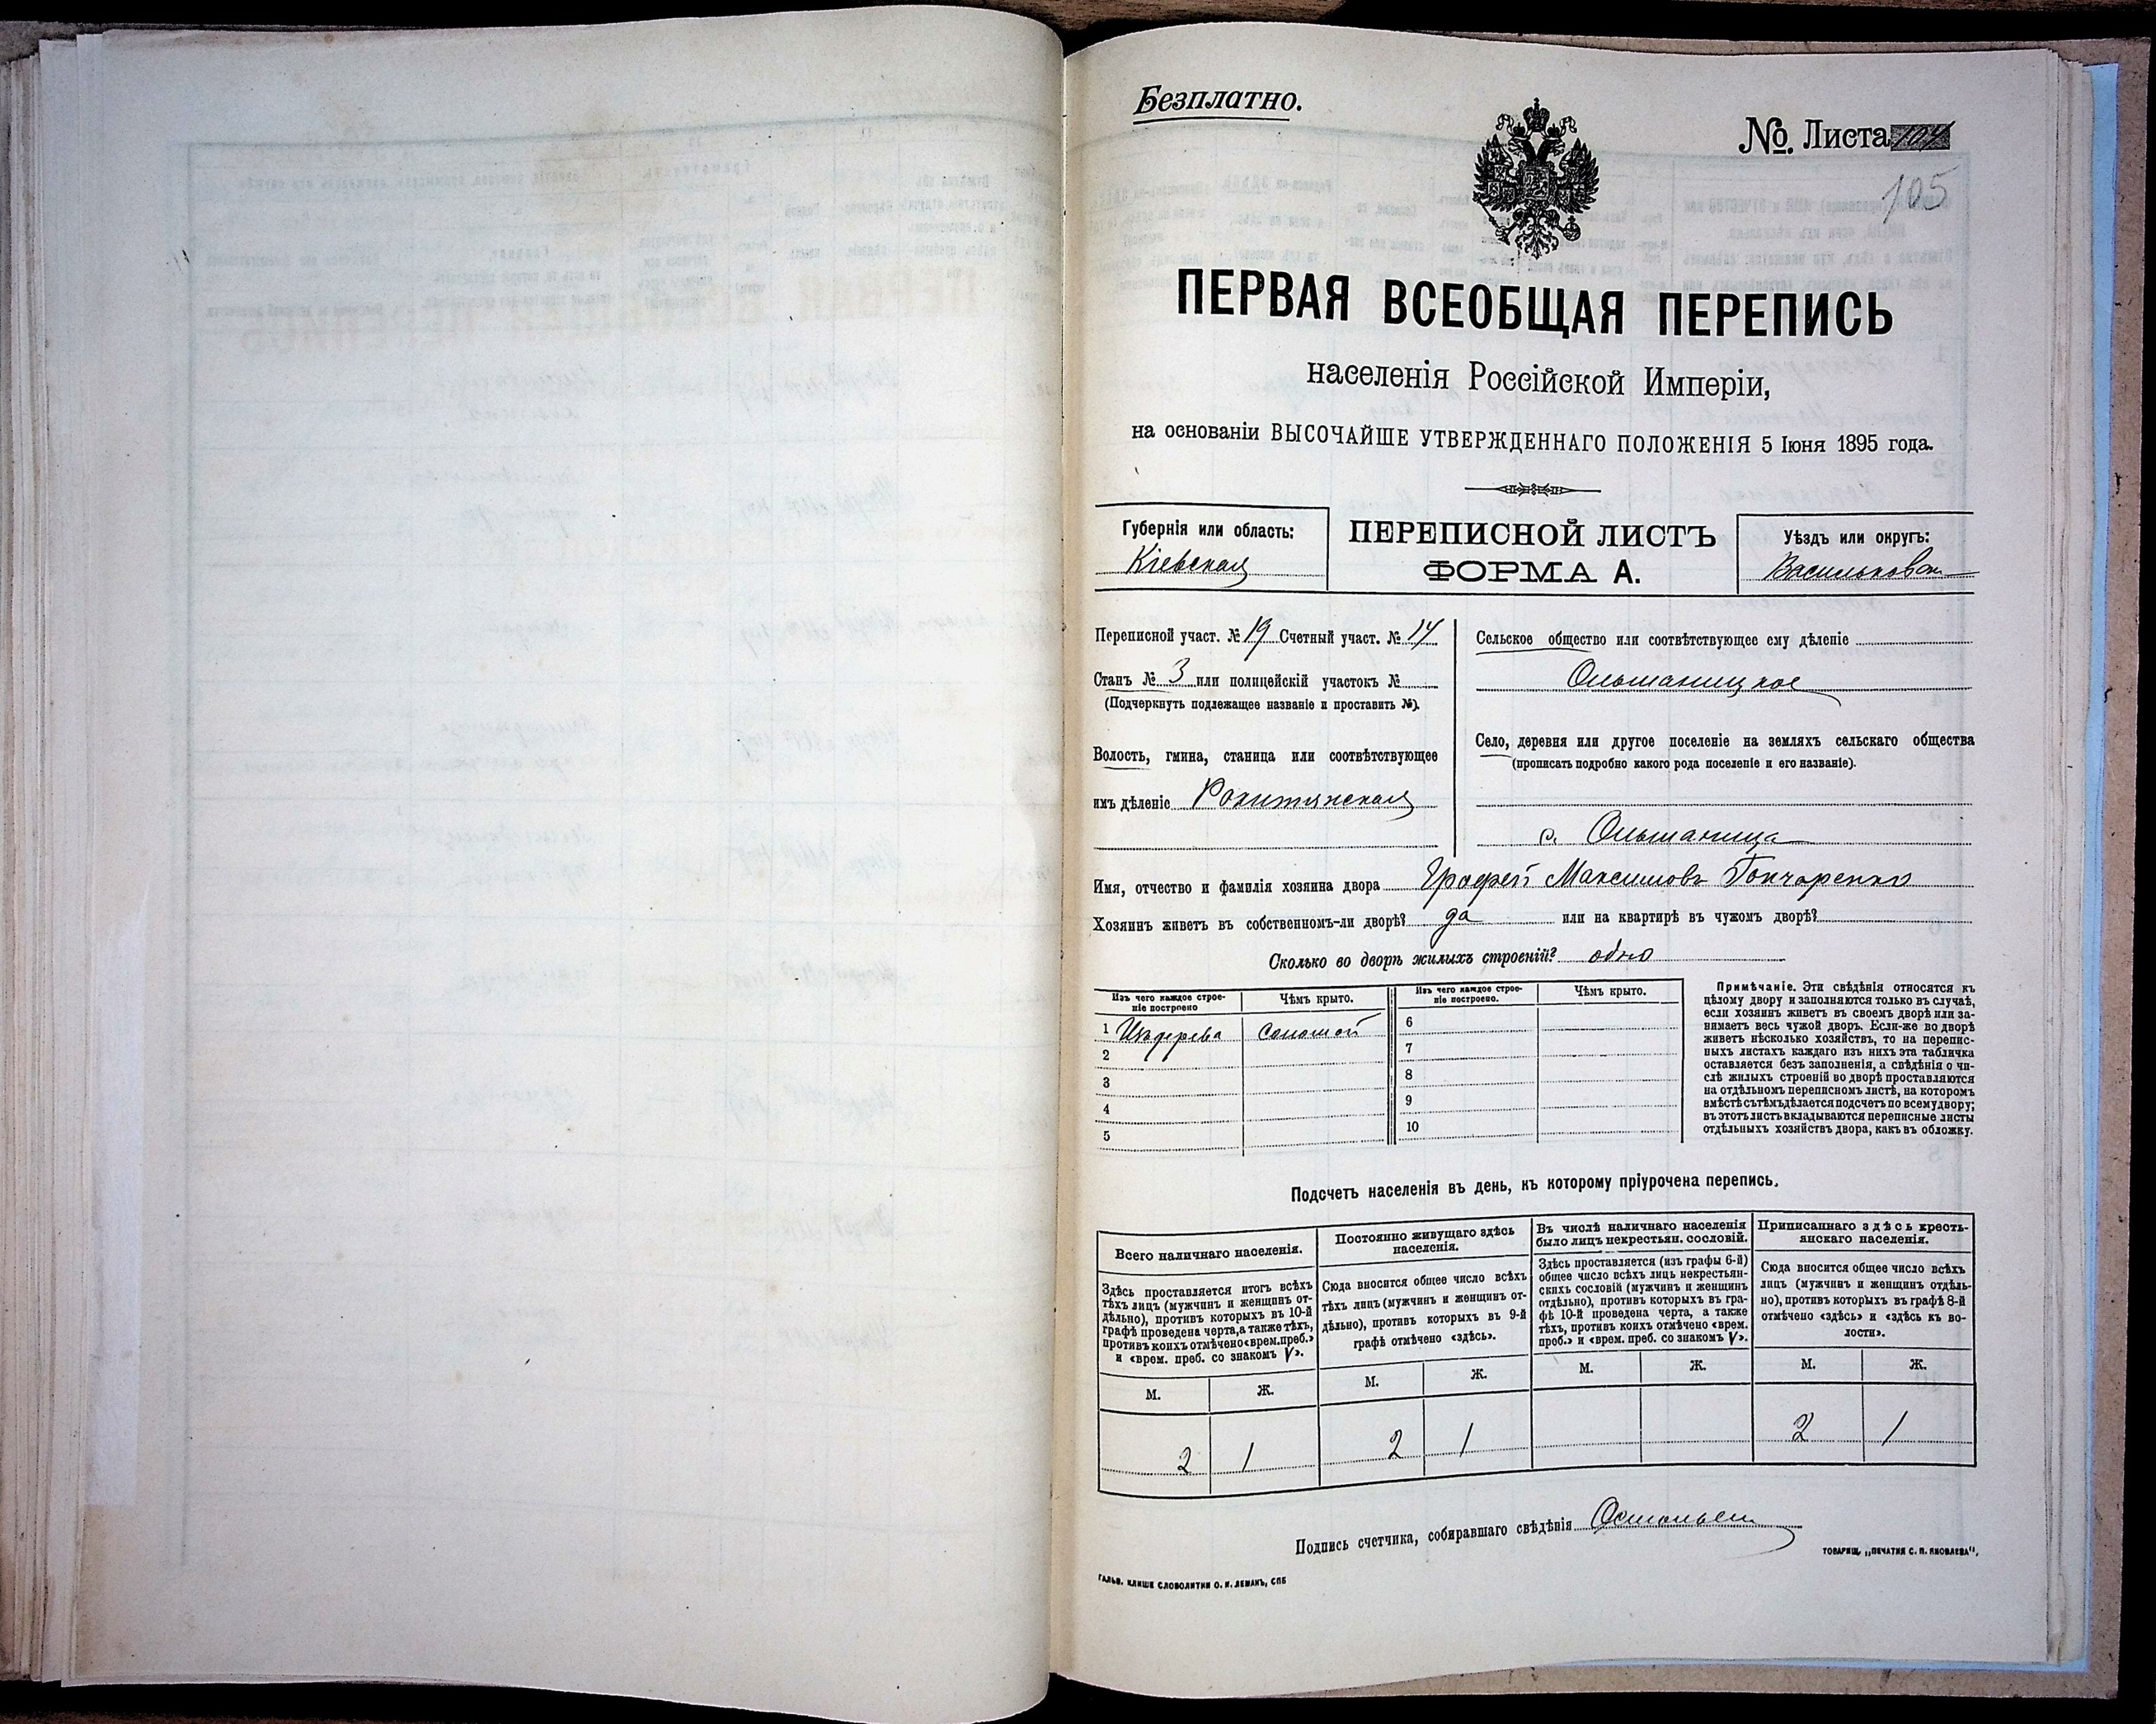 Безплатно.
№ Листа 104
105
ПЕРВАЯ ВСЕОБЩАЯ ПЕРЕПИСЬ
населенія Россійской Имперіи,
на основаніи ВЫСОЧАЙШЕ УТВЕРЖДЕННАГО ПОЛОЖЕНІЯ 5 Іюня 1895 года.
Губернія или область:
Кіевская
ПЕРЕПИСНОЙ ЛИСТЪ
ФОРМА А.
Уѣздъ или округъ:
Васильков
Переписной участ. № 19 Счетный участ. № 14
Станъ № 3 или полицейскій участокъ №
(Подчеркнуть подлежащее названіе и проставить №).
Волость, гмина, станица или соотвѣтствующее
имъ дѣленіе Рокитянская
Сельское общество или соотвѣтствующее ему дѣленіе
Ольшаницкое
Село, деревня или другое поселеніе на земляхъ сельскаго общества
(прописать подробно какого рода поселеніе и его названіе).
с. Ольшаница
Имя, отчество и фамилія хозяина двора Максимовъ Гончаренко
Хозяинъ живетъ въ собственномъ-ли дворѣ? да или на квартирѣ въ чужомъ дворѣ?
Сколько во дворѣ жилыхъ строеній? одно
Изъ чего каждое строе-
ніе построено
Чѣмъ крыто.
Изъ чего каждое строе-
ніе построено.
Чѣмъ крыто.
1 Изъ дерева соломой
2
3
4
5
6
7
8
9
10
Примѣчаніе. Эти свѣдѣнія относятся къ
цѣлому двору и заполняются только въ случаѣ,
если хозяинъ живетъ въ своемъ дворѣ или за-
нимаетъ весь чужой дворъ. Если-же во дворѣ
живетъ нѣсколько хозяйствъ, то на перепис-
ныхъ листахъ каждаго изъ нихъ эта табличка
оставляется безъ заполненія, а свѣдѣнія о чи-
слѣ жилыхъ строеній во дворѣ проставляются
на отдѣльномъ переписномъ листѣ, на которомъ
вмѣстѣ съ тѣмъ дѣлается подсчетъ по всему двору;
въ этотъ листъ вкладываются переписные листы
отдѣльныхъ хозяйствъ двора, какъ въ обложку.
Подсчетъ населенія въ день, къ которому пріурочена перепись.
Всего наличнаго населенія.
Здѣсь проставляется итогъ всѣхъ
тѣхъ лицъ (мужчинъ и женщинъ от-
дѣльно), противъ которыхъ въ 10-й
графѣ проведена черта, а также тѣхъ,
противъ коихъ отмѣчено «врем. преб.»
и «врем. преб. со знакомъ V».
Постоянно живущаго здѣсь
населенія.
Сюда вносится общее число всѣхъ
тѣхъ лицъ (мужчинъ и женщинъ от-
дѣльно), противъ которыхъ въ 9-й
графѣ отмѣчено «здѣсь».
Въ числѣ наличнаго населенія
было лицъ некрестьян. сословій.
Здѣсь проставляется (изъ графы 6-й)
общее число всѣхъ лицъ некрестьян-
скихъ сословій (мужчинъ и женщинъ
отдѣльно), противъ которыхъ въ гра-
фѣ 10-й проведена черта, а также
тѣхъ, противъ коихъ отмѣчено «врем.
преб.» и «врем. преб. со знакомъ V».
Приписаннаго здѣсь кресть-
янскаго населенія.
Сюда вносится общее число всѣхъ
лицъ (мужчинъ и женщинъ отдѣль-
но), противъ которыхъ въ графѣ 8-й
отмѣчено «здѣсь» и «здѣсь къ во-
лости».
М. Ж. М. Ж. М. Ж. М. Ж.
2 1 2 1 2 1
Подпись счетчика, собиравшаго свѣдѣнія
ТОВАРИЩ. „ПЕЧАТНЯ С. П. ЯКОВЛЕВА“.
ГАЛЬВ. КЛИШЕ СЛОВОЛИТНИ О. И. ЛЕМАНЪ, СПБ